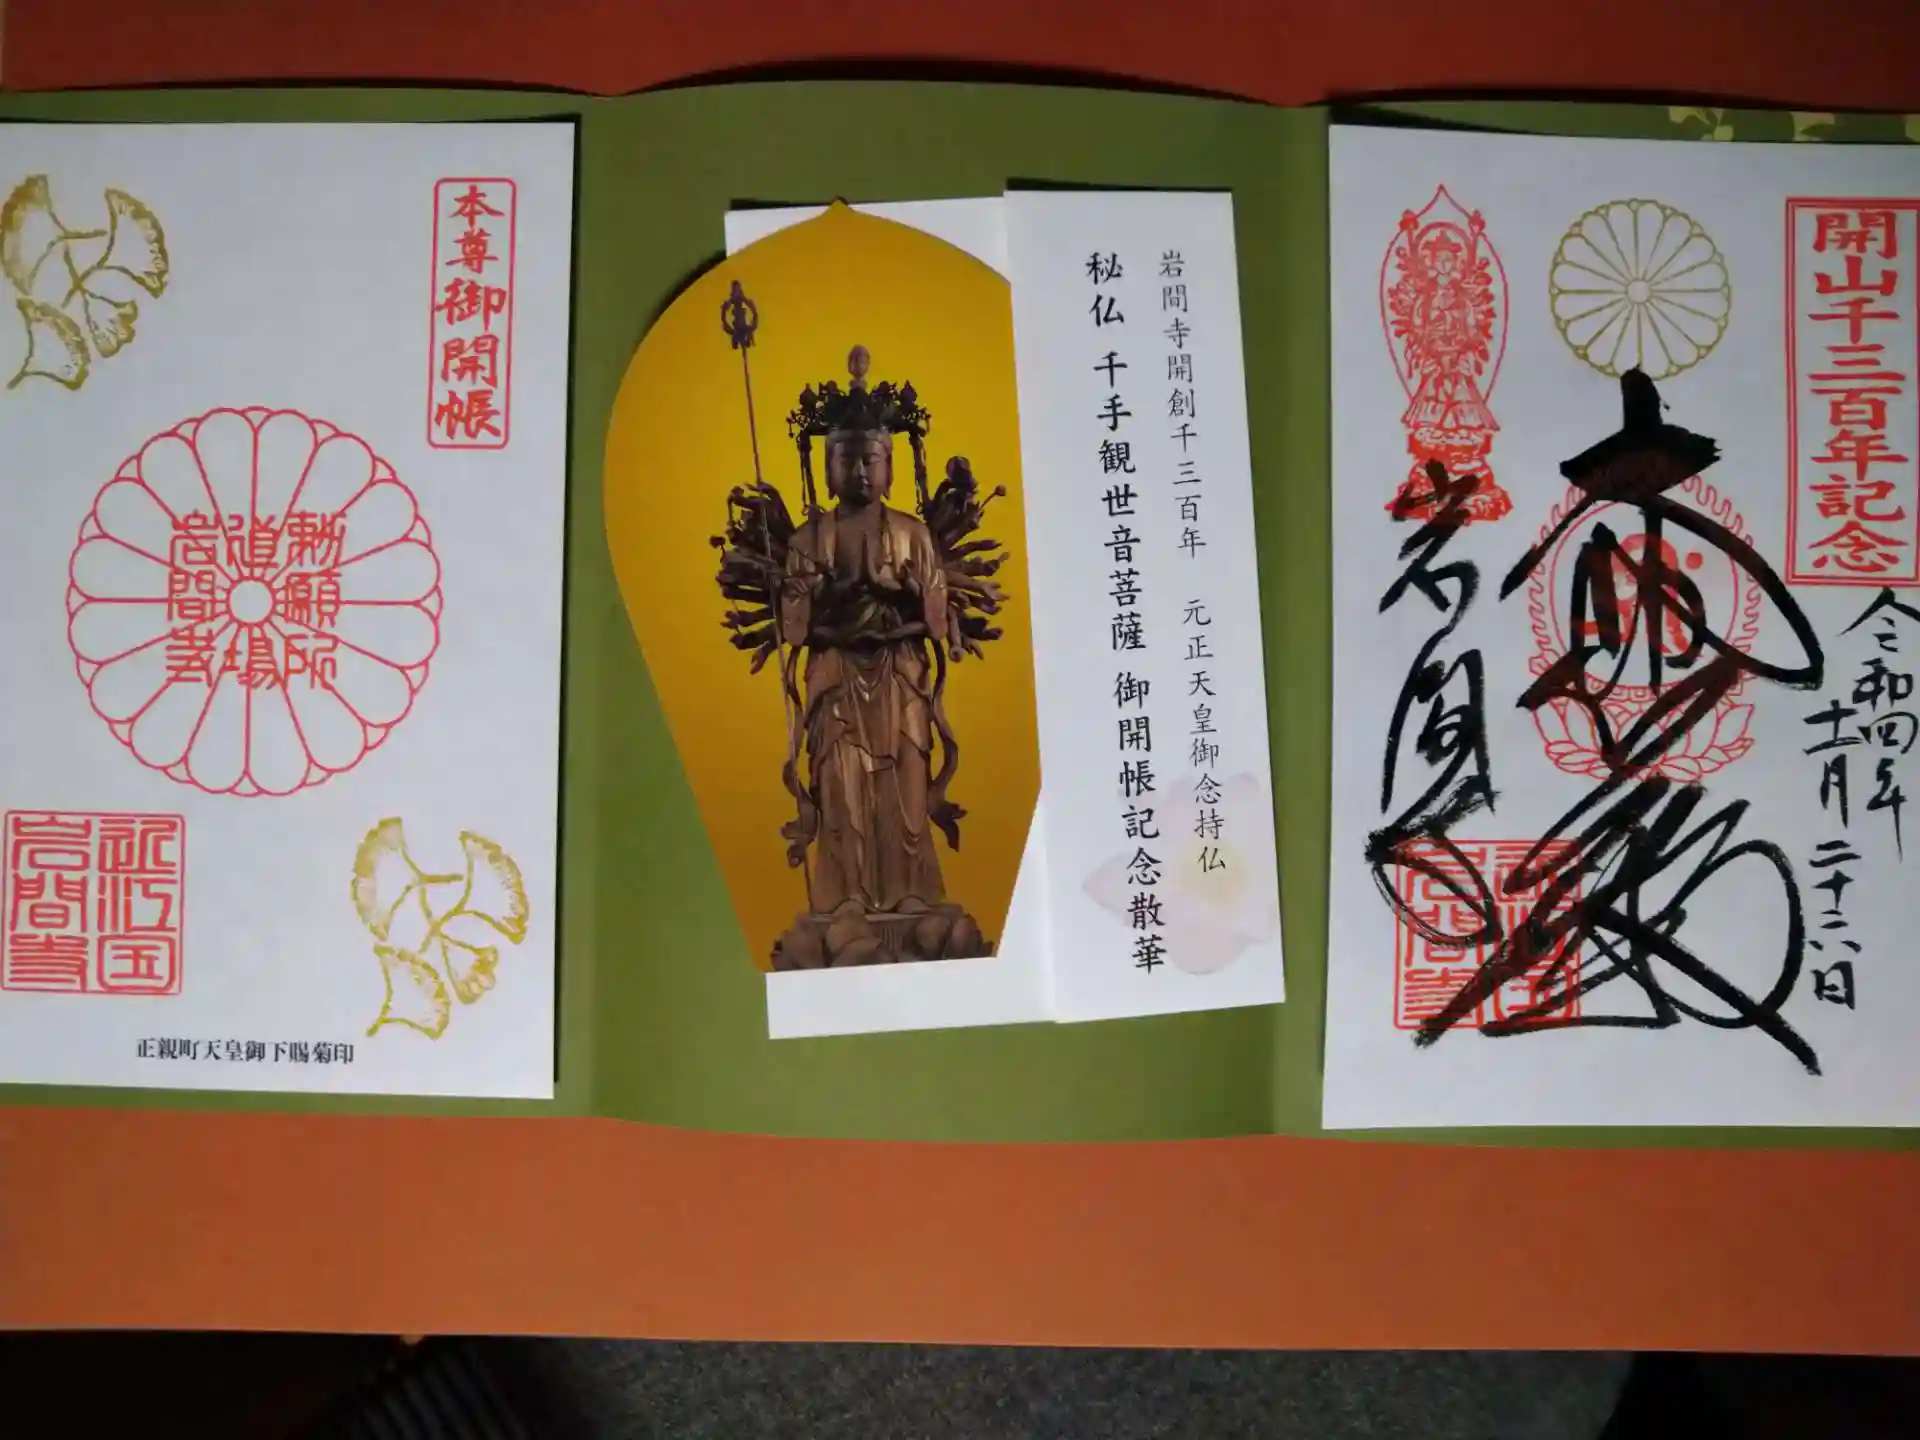 開山千三百年記念
令和四年
十一月二十六日
大悲殿
岩間寺
近江国
岩間寺
岩間寺開創千三百年 元正天皇御念持仏
秘仏 千手観世音菩薩 御開帳記念散華
本尊御開帳
勅願所
道場
岩間寺
近江国
岩間寺
正親町天皇御下賜菊印